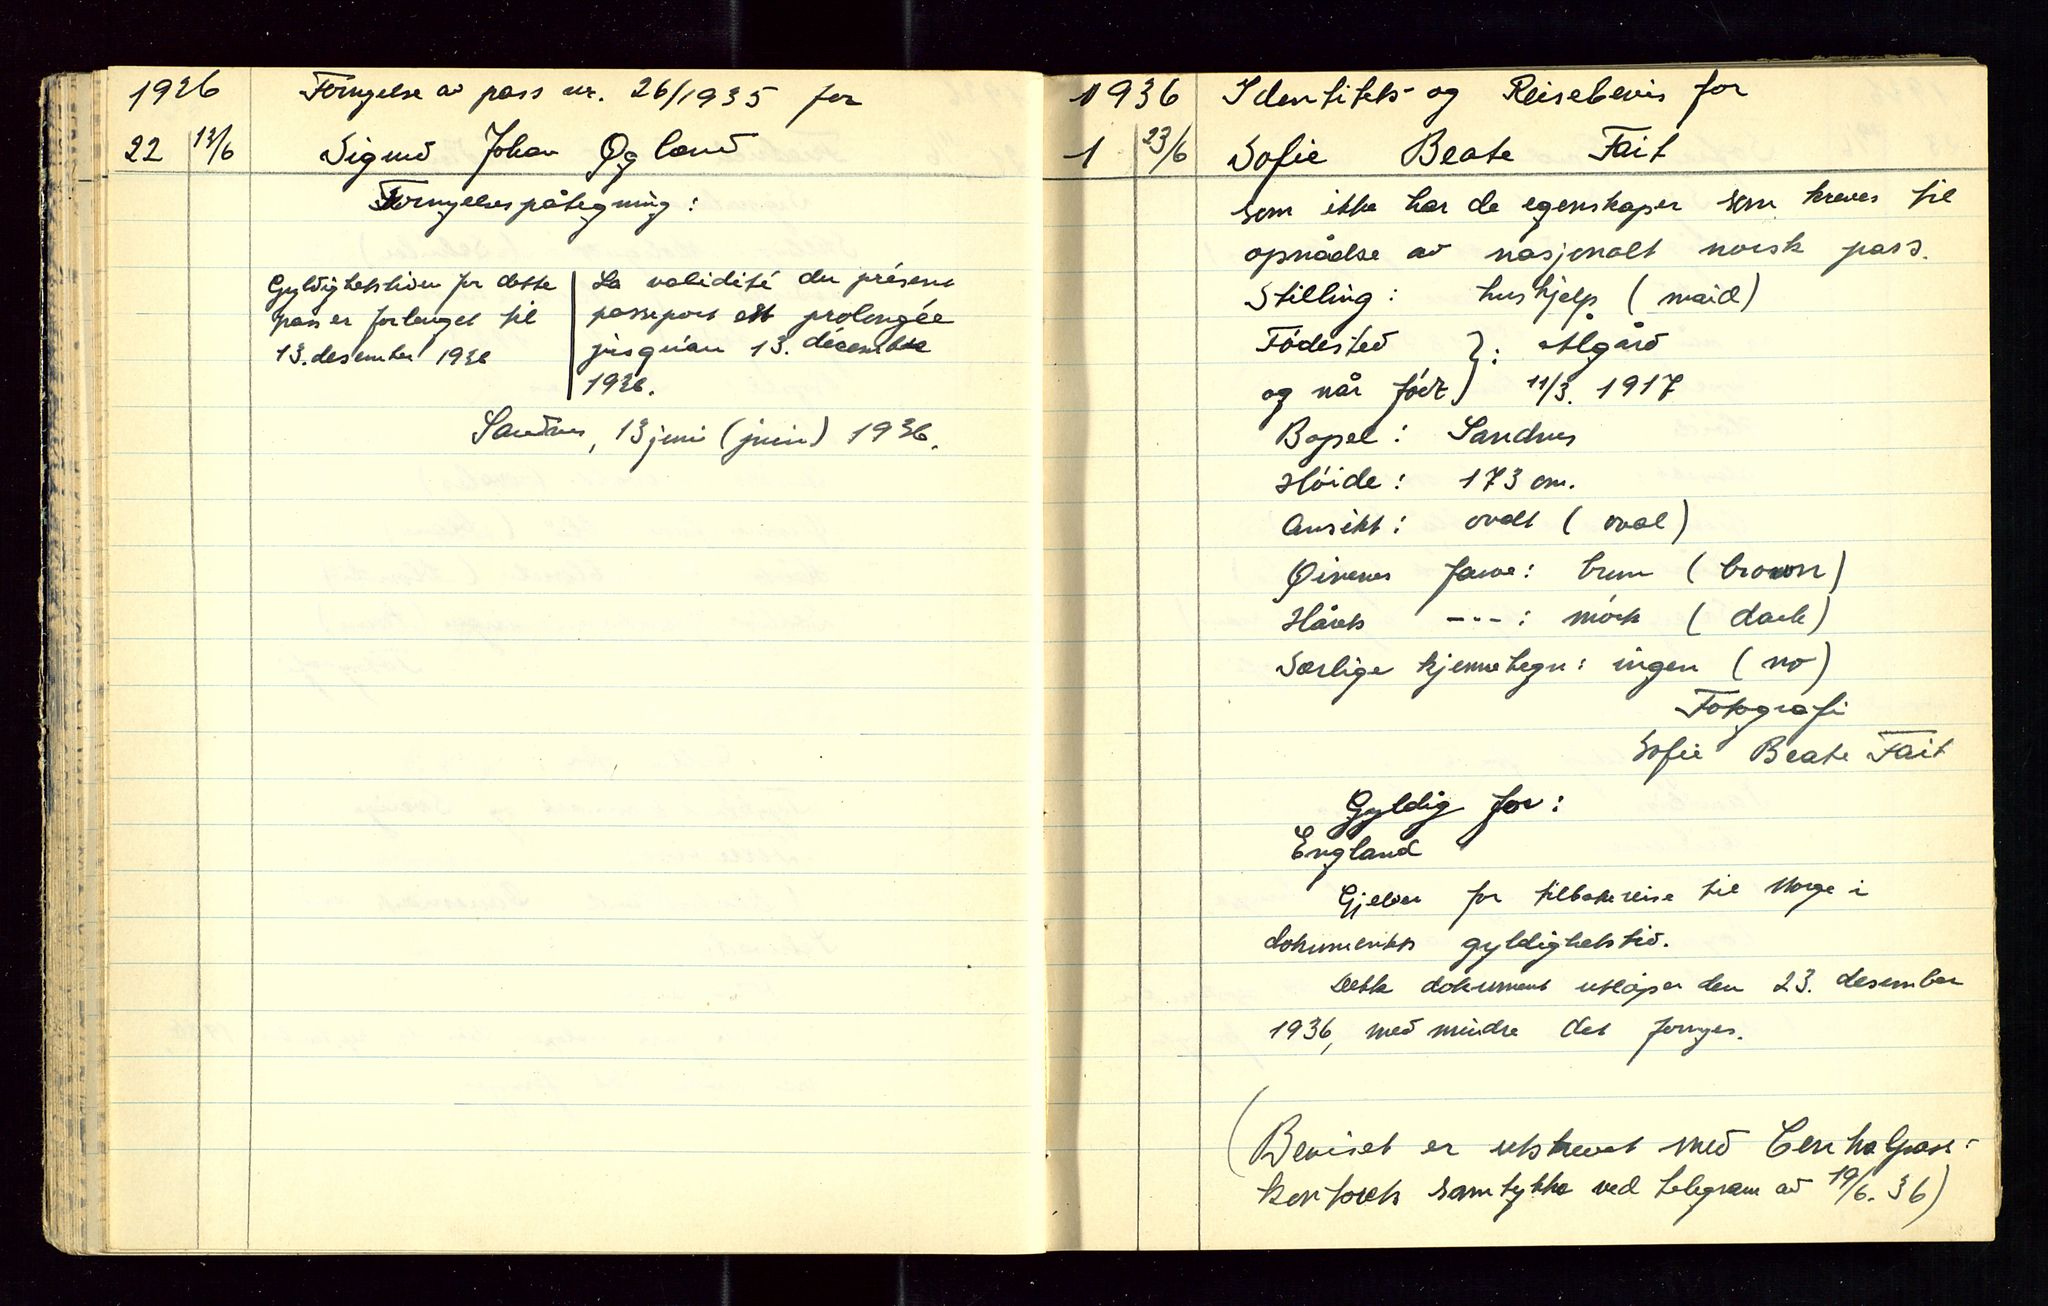 1936 Fornyelse av pass nr. 26/1935 for
22 13/6 Sigurd Johan Ogland
Fornyelsespåtegning:
Gyldighetstiden for dette
pass er forlenget til
13. desember 1936
La validité du présent
passeport est prolongée
jusqu'au 13. décembre
1936.
Sandnes, 13 juni (juin) 1936.
1936 Identitets- og Reisebevis for
1 23/6 Sofie Beate Fait
som ikke har de egenskaper som kreves til
opnåelse av nasjonalt norsk pass.
Stilling: hushjelp (maid)
Fødested }: Ålgård
og når født } 11/3. 1917
Bopel: Sandnes
Høide: 173 cm.
Ansikt: ovalt (oval)
Øinenes farve: brun (brown)
Hårets ---: mørk (dark)
Særlige kjennetegn: ingen (no)
Fotografi
Sofie Beate Fait
Gyldig for:
England
Gjelder for tilbakereise til Norge i
dokumentets gyldighetstid.
Dette dokument utløper den 23. desember
1936, med mindre det fornyes.
(Beviset er utskrevet med Centralpass-
kontorets samtykke ved telegram av 19/6. 36)